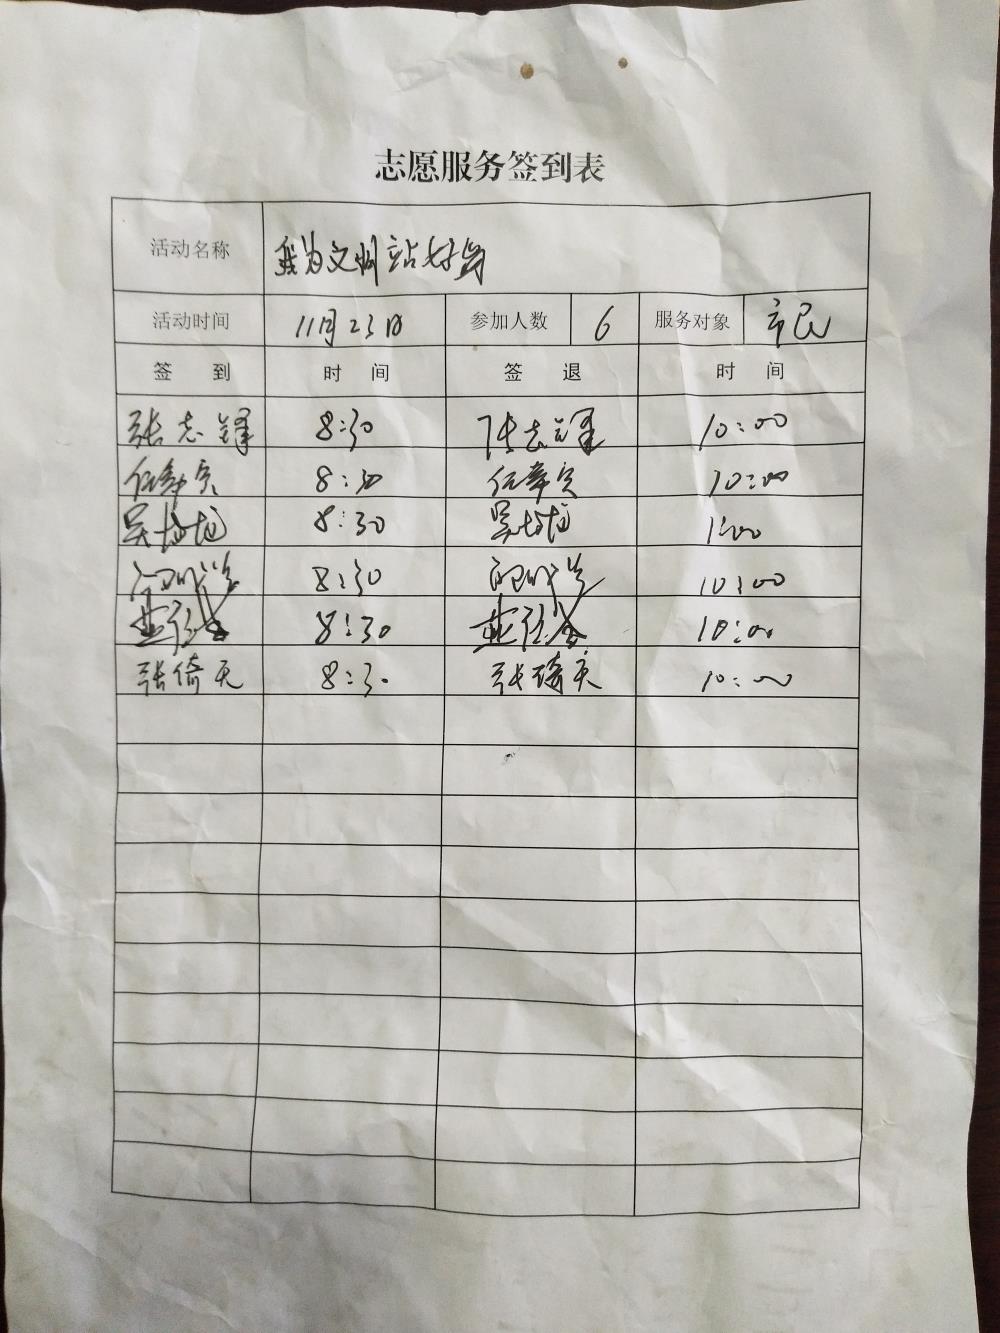 志愿服务签到表
活动名称 我为文明站好岗
活动时间 11月23日 参加人数 6 服务对象 市民
签到 时间 签退 时间
张志锋 8:30 张志锋 10:00
8:30 10:00
吴 8:30 吴 1:00
8:30 10:00
8:30 10:00
张倚天 8:30 张琦天 10:00